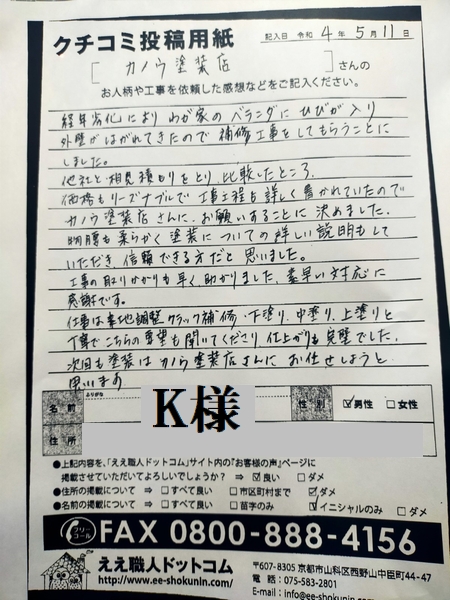 クチコミ投稿用紙
記入日 令和 4 年 5 月 11 日
[カノウ塗装店]さんの
お人柄や工事を依頼した感想などをご記入ください。
経年劣化により わが家のベランダに ひびが入り
外壁がはがれてきたので 補修工事をしてもらうことに
しました。
他社と相見積もりをとり、比較したところ、
価格もリーズナブルで工事工程も詳しく書かれていたので
カノウ塗装店さんに、お願いすることに決めました。
物腰も柔らかく塗装についての詳しい説明もして
いただき、信頼できる方だと思いました。
工事の取りかかりも早く、助かりました。素早い対応に
感謝です。
仕事は素地調整、クラック補修、下塗り、中塗り、上塗りと
丁寧でこちらの要望も聞いてくださり 仕上がりも完璧でした。
次回も塗装は カノウ塗装店さんに お任せしようと
思います
ふりがな
名前 K様 性別 ☑男性 □女性
住所
●上記内容を、「ええ職人ドットコム」サイト内の『お客様の声』ページに
掲載させていただいてよろしいでしょうか? ⇒ ☑良い □ダメ
●住所の掲載について ⇒ □すべて良い □市区町村まで ☑ダメ
●名前の掲載について ⇒ □すべて良い □苗字のみ ☑イニシャルのみ □ダメ
フリーコール FAX 0800-888-4156
ええ職人ドットコム
http://www.ee-shokunin.com/
〒607-8305 京都市山科区西野山中臣町44-47
電話:075-583-2801
E-mail:info@ee-shokunin.com